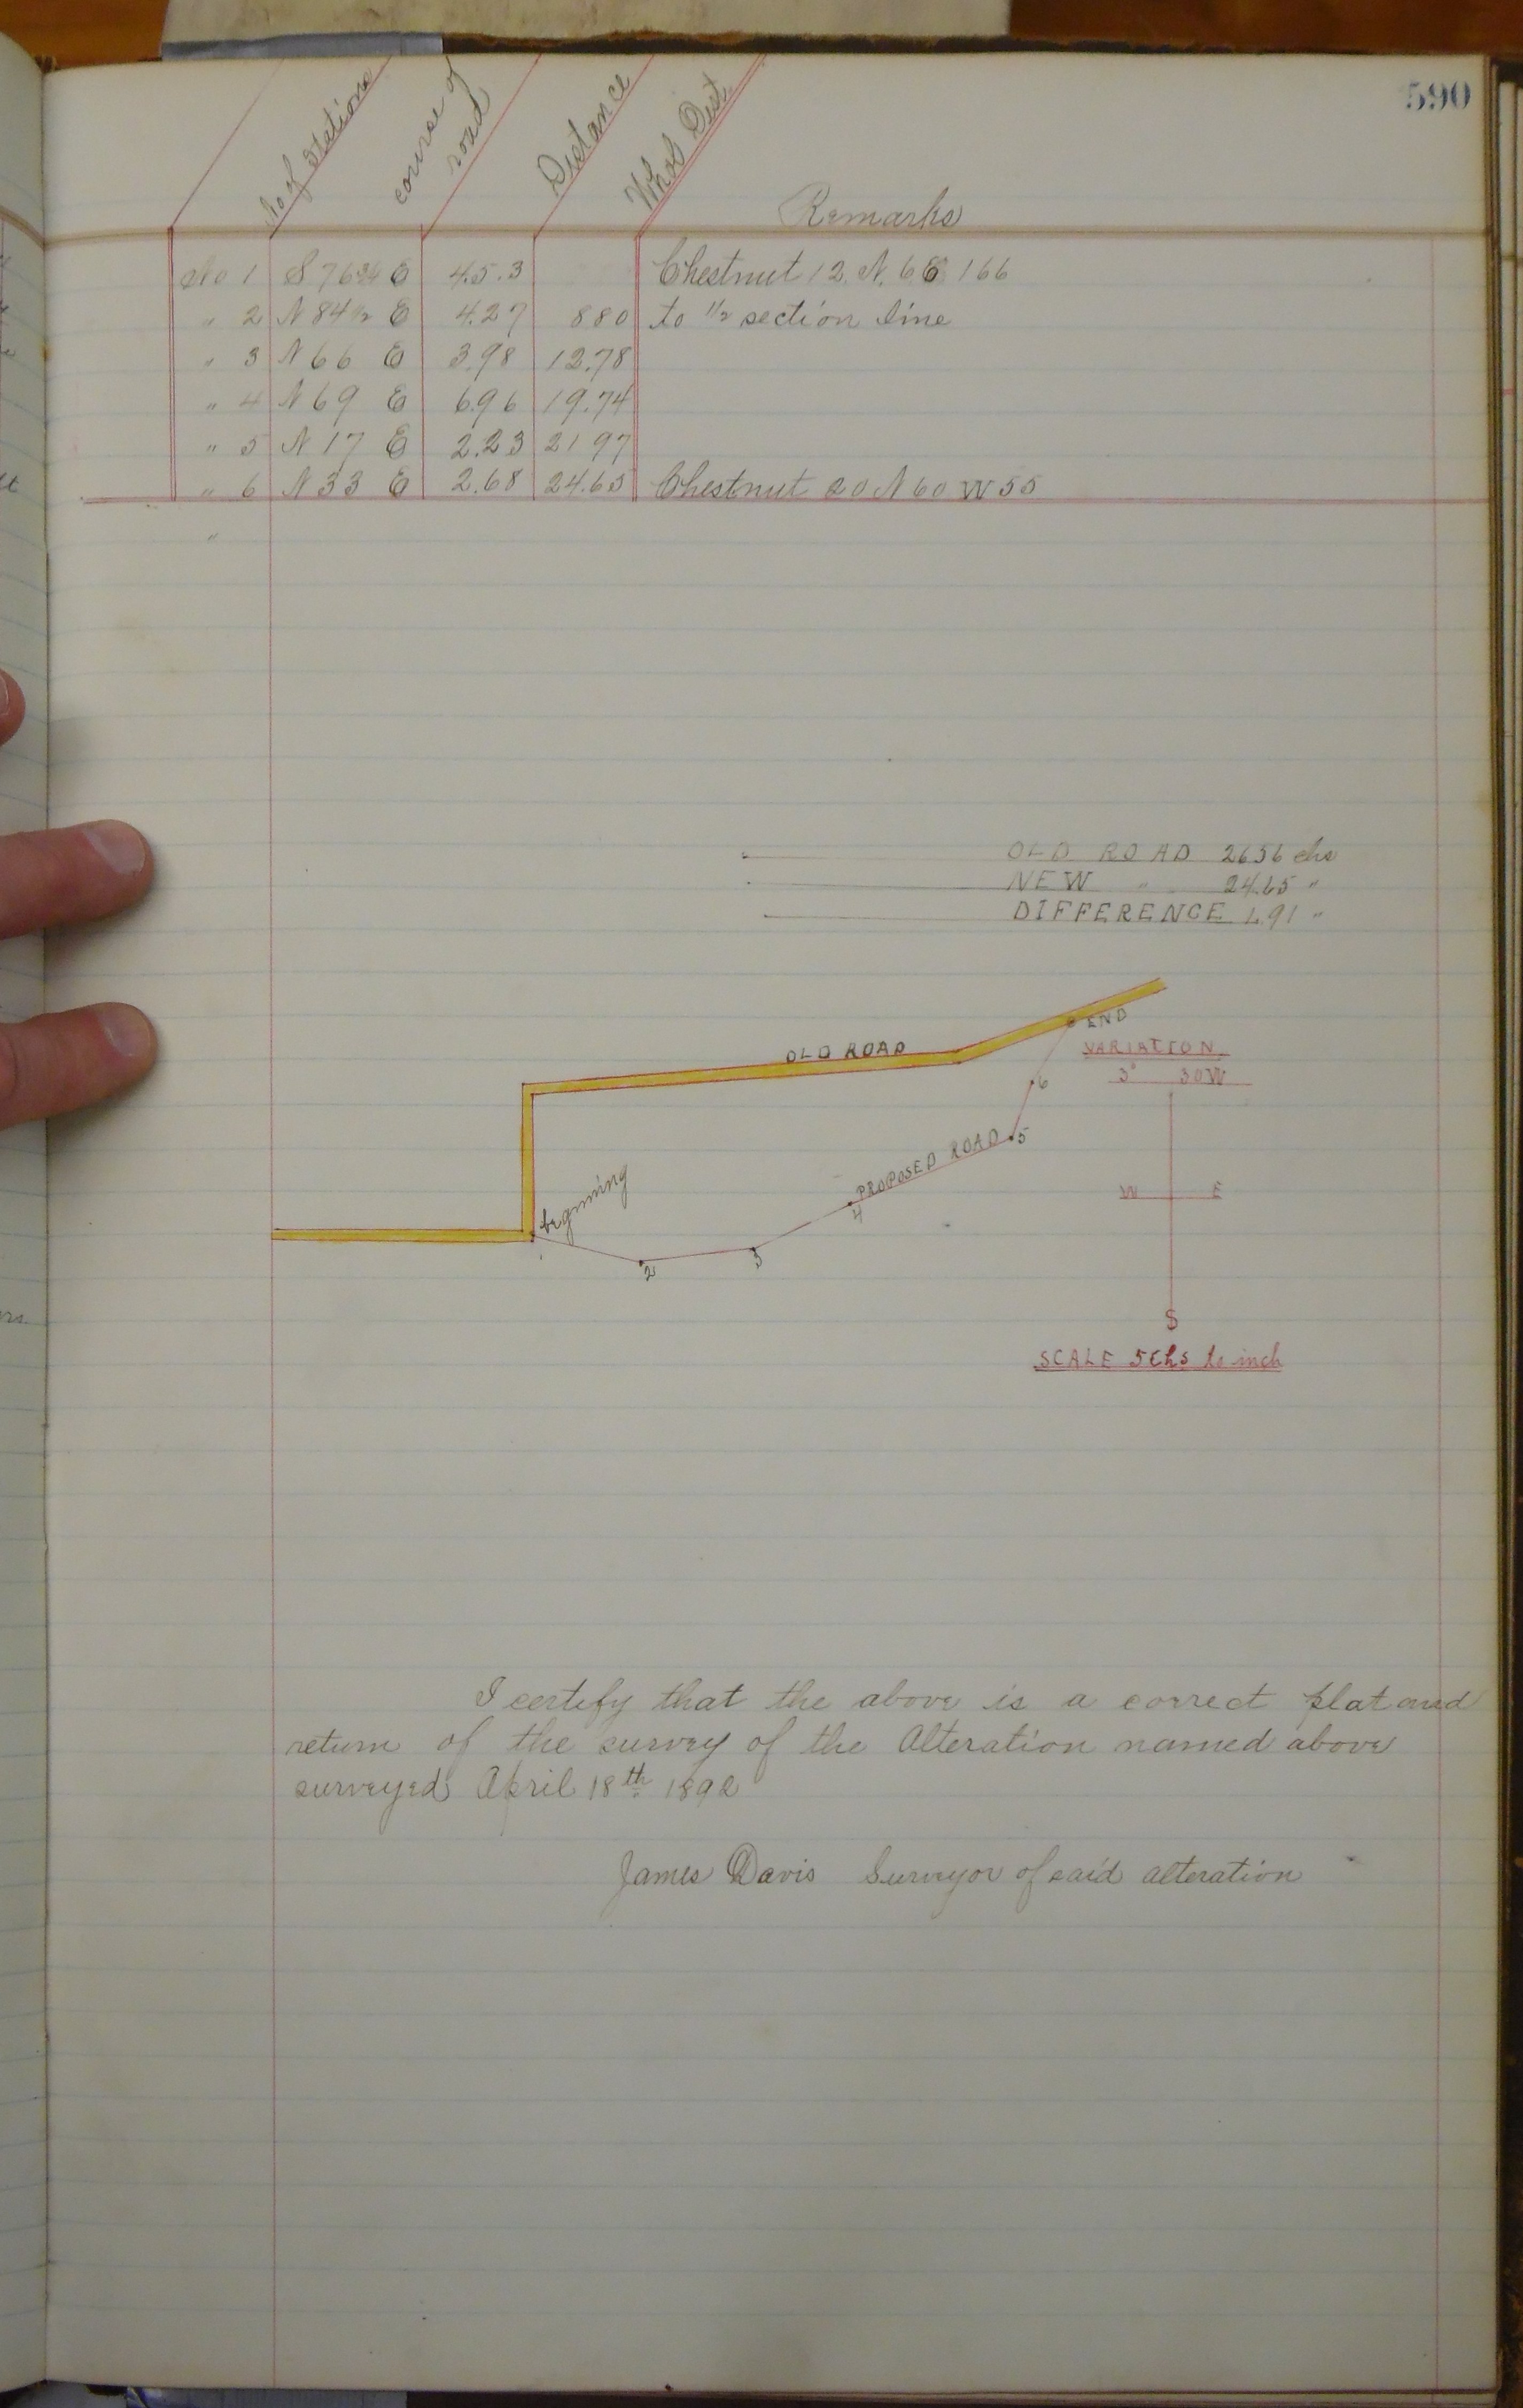 590
No of stations course of road Distance Whol Dist Remarks
No 1 S 76 3/4 E 4.5.3 Chestnut 12. N. 6 E 166
" 2 N 84 1/2 E 4.27 880 to 1/2 section line
" 3 N 66 E 3.98 12.78
" 4 N 69 E 6.96 19.74
" 5 N 17 E 2.23 21 97
" 6 N 33 E 2.68 24.65 Chestnut 20 N 60 W 55
"
OLD ROAD 2656 chs
NEW " 24.65 "
DIFFERENCE 1.91 "
END
OLD ROAD
VARIATION
3° 30 W
6
PROPOSED ROAD 5
begnning
4
W E
2 3
S
SCALE 5 Chs to inch
I certify that the above is a correct plat and
return of the survey of the Alteration named above
surveyed April 18th 1892
James Davis Surveyor of said alteration